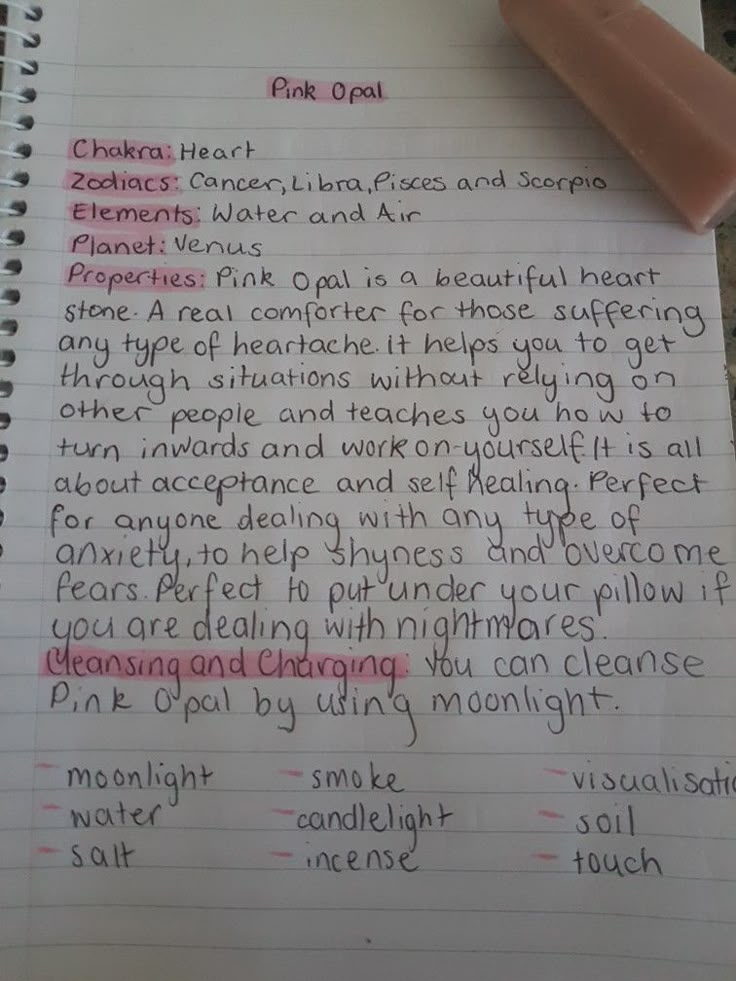 Pink Opal
Chakra: Heart
Zodiacs: Cancer, Libra, Pisces and Scorpio
Elements: Water and Air
Planet: Venus
Properties: Pink Opal is a beautiful heart
stone. A real comforter for those suffering
any type of heartache. it helps you to get
through situations without relying on
other people and teaches you how to
turn inwards and work on-yourself. It is all
about acceptance and self healing. Perfect
for anyone dealing with any type of
anxiety, to help shyness and overcome
fears. Perfect to put under your pillow if
you are dealing with nightmares.
Cleansing and Charging: You can cleanse
Pink Opal by using moonlight.
- moonlight - smoke - visualisati
- water - candlelight - soil
- salt - incense - touch